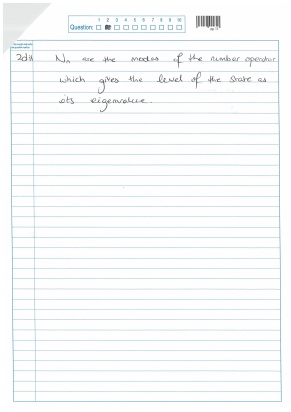 1 2 3 4 5 6 7 8 9 10
Question:
2dii Nn are the modes of the number operator
which gives the level of the state as
its eigenvalue.